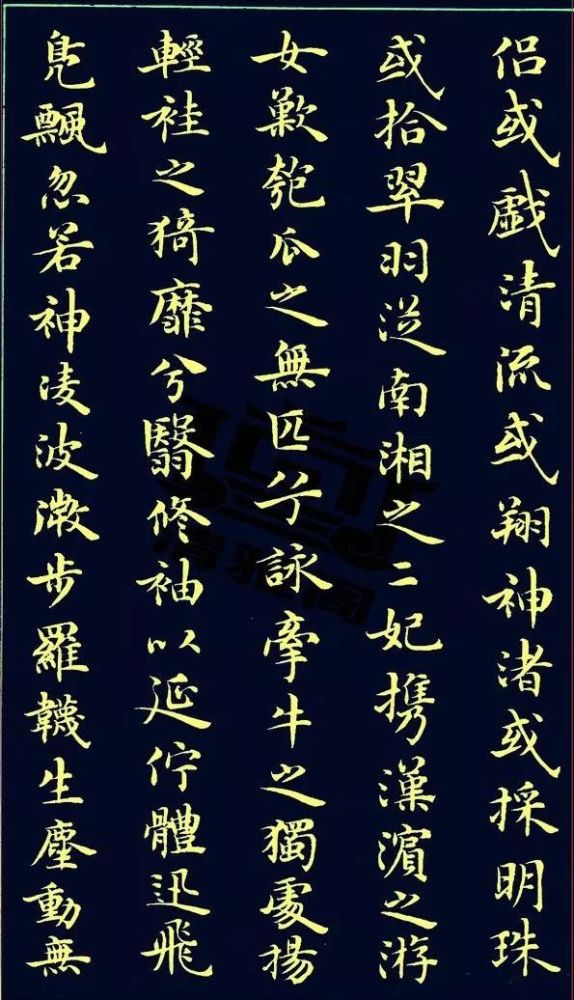 侣或戯清流或翔神渚或採明珠
或拾翠羽從南湘之二妃携漢濵之游
女歎匏瓜之無匹兮詠牽牛之獨處揚
輕袿之猗靡兮翳修袖以延佇體迅飛
凫飄忽若神凌波微步羅韈生塵動無